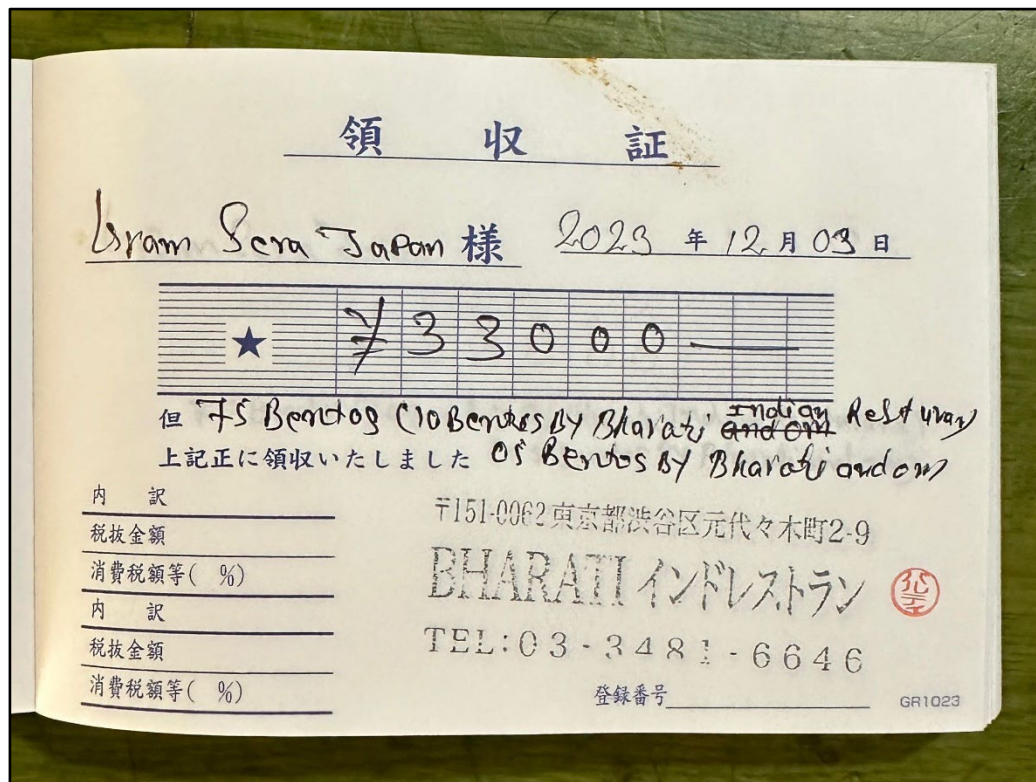 領収証
Sera Japan 様 2023 年 12 月 03 日
★ ¥33000—
但 75 Bentos (70 Bentos BY Bharati Indian Resturan
上記正に領収いたしました 05 Bentos BY Bharati and om
内訳
税抜金額
消費税額等( %)
内訳
税抜金額
消費税額等( %)
〒151-0062 東京都渋谷区元代々木町2-9
BHARATI インドレストラン
TEL:03-3481-6646
登録番号
GR1023